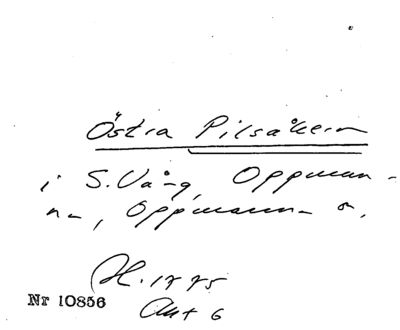 Östra Pilsåkern
i S. Vång, Oppman-
na, Oppmanna s,
H. 1775
Nr 10856
Akt 6